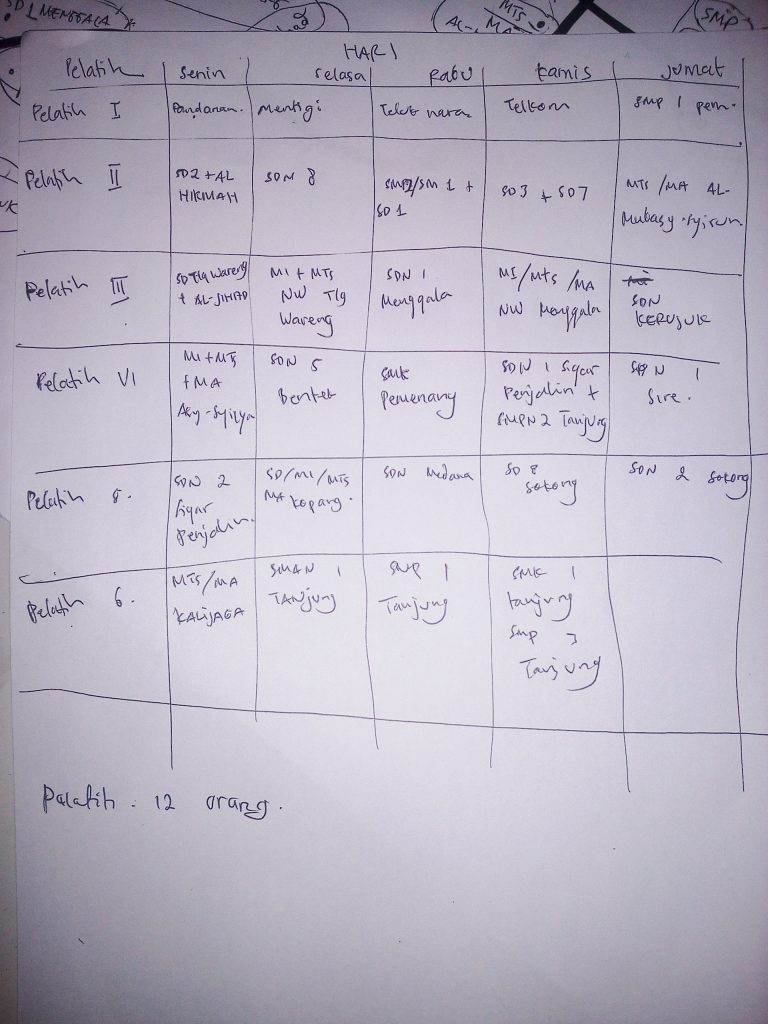 SD 1 MENGGALA
MTS
MA
SMP
HARI
Pelatih Senin Selasa Rabu Kamis Jumat
Pelatih I Pandanan. Mentigi Teluk nara Telkom SMP 1 pem.
Pelatih II SD2 + AL HIKMAH SDN 8 SMP2/SM 1 + SD 1 SD3 + SD7 MTS /MA AL-Mubasy-syirun
Pelatih III SD Tlg Wareng + AL-JIHAD MI + MTS NW Tlg Wareng SDN 1 Menggala MI/MTS /MA NW Menggala SDN KERUJUK
Pelatih VI MI + MTS + MA Asy-Syifya SDN 5 Bentek SMK Pemenang SDN 1 Sigar Penjalin + SMPN 2 Tanjung SDN 1 Sire.
Pelatih 5. SDN 2 Sigar Penjalin. SD/MI/MTS MA Kopang. SDN Medana SD 8 Sokong SDN 2 Sokong
Pelatih 6. MTS/MA KALIJAGA SMAN 1 TANJUNG SMP 1 Tanjung SMK 1 tanjung SMP 3 Tanjung
Palatih . 12 orang.